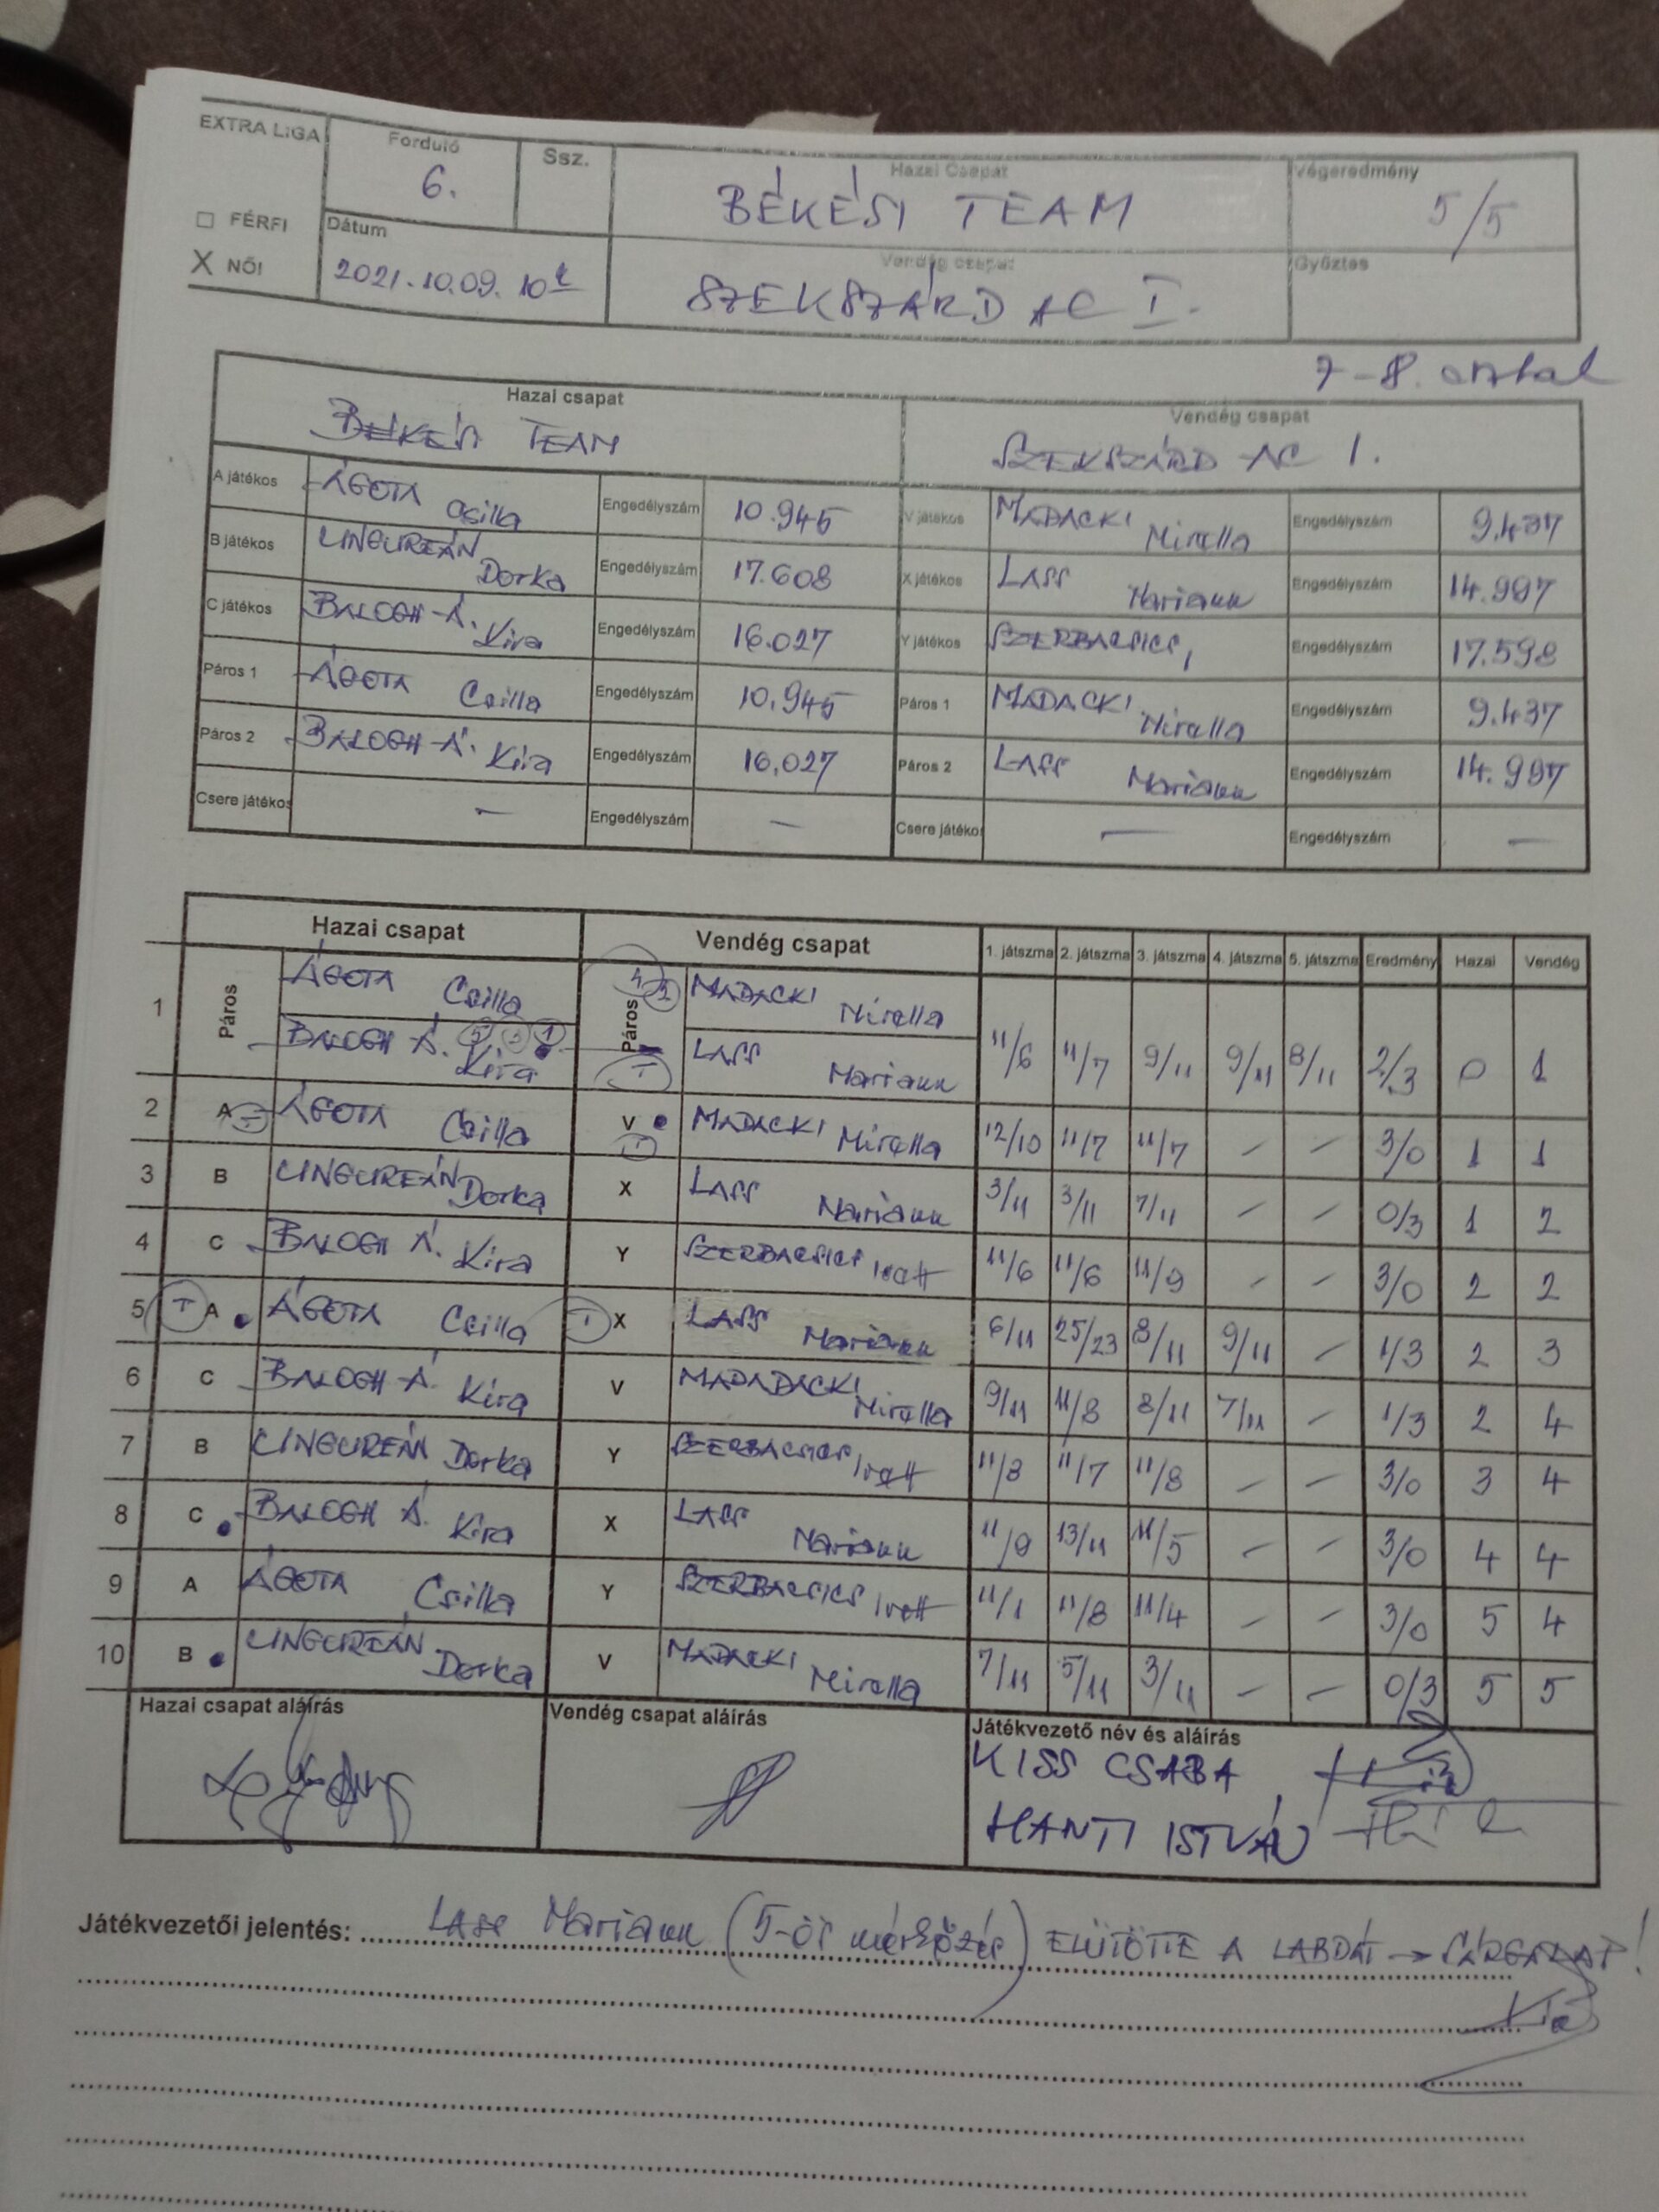 EXTRA LIGA Forduló Ssz. Hazai Csapat Végeredmény
6. BÉKÉSI TEAM 5/5
□ FÉRFI Dátum Vendég csapat Győztes
X NŐI 2021.10.09. 10 SZEKSZÁRD AC I.
7-8. asztal
Hazai csapat Vendég csapat
BÉKÉSI TEAM SZEKSZÁRD AC I.
A játékos ÁGOTA Csilla Engedélyszám 10.945 V játékos MADACKI Mirella Engedélyszám 9.437
B játékos UNGUREÁN Dorka Engedélyszám 17.608 X játékos LASS Mariann Engedélyszám 14.997
C játékos BALOGH-Á. Kira Engedélyszám 16.027 Y játékos SZERBACSICS, Engedélyszám 17.598
Páros 1 ÁGOTA Csilla Engedélyszám 10.945 Páros 1 MADACKI Mirella Engedélyszám 9.437
Páros 2 BALOGH-Á. Kira Engedélyszám 16.027 Páros 2 LASS Mariann Engedélyszám 14.997
Csere játékos — Engedélyszám — Csere játékos — Engedélyszám —
Hazai csapat Vendég csapat 1. játszma 2. játszma 3. játszma 4. játszma 5. játszma Eredmény Hazai Vendég
1 Páros ÁGOTA Csilla Páros MADACKI Mirella
BALOGH Á. Kira LASS Mariann 11/6 11/7 9/11 9/11 8/11 2/3 0 1
2 A ÁGOTA Csilla V MADACKI Mirella 12/10 11/7 11/7 – – 3/0 1 1
3 B UNGUREÁN Dorka X LASS Mariann 3/11 3/11 7/11 – – 0/3 1 2
4 C BALOGH Á. Kira Y SZERBACSICS Ivett 11/6 11/6 11/9 – – 3/0 2 2
5 T A ÁGOTA Csilla T X LASS Mariann 6/11 25/23 8/11 9/11 – 1/3 2 3
6 C BALOGH-Á. Kira V MADADACKI Mirella 9/11 11/8 8/11 7/11 – 1/3 2 4
7 B UNGUREÁN Dorka Y SZERBACSICS Ivett 11/8 11/7 11/8 – – 3/0 3 4
8 C BALOGH Á. Kira X LASS Mariann 11/9 13/11 11/5 – – 3/0 4 4
9 A ÁGOTA Csilla Y SZERBACSICS Ivett 11/1 11/8 11/4 – – 3/0 5 4
10 B UNGUREÁN Dorka V MADACKI Mirella 7/11 5/11 3/11 – – 0/3 5 5
Hazai csapat aláírás Vendég csapat aláírás Játékvezető név és aláírás
KISS CSABA
HANTI ISTVÁN
Játékvezetői jelentés: LASS Mariann (5-ös mérkőzés) ELÜTÖTTE A LABDÁT → SÁRGALAP!